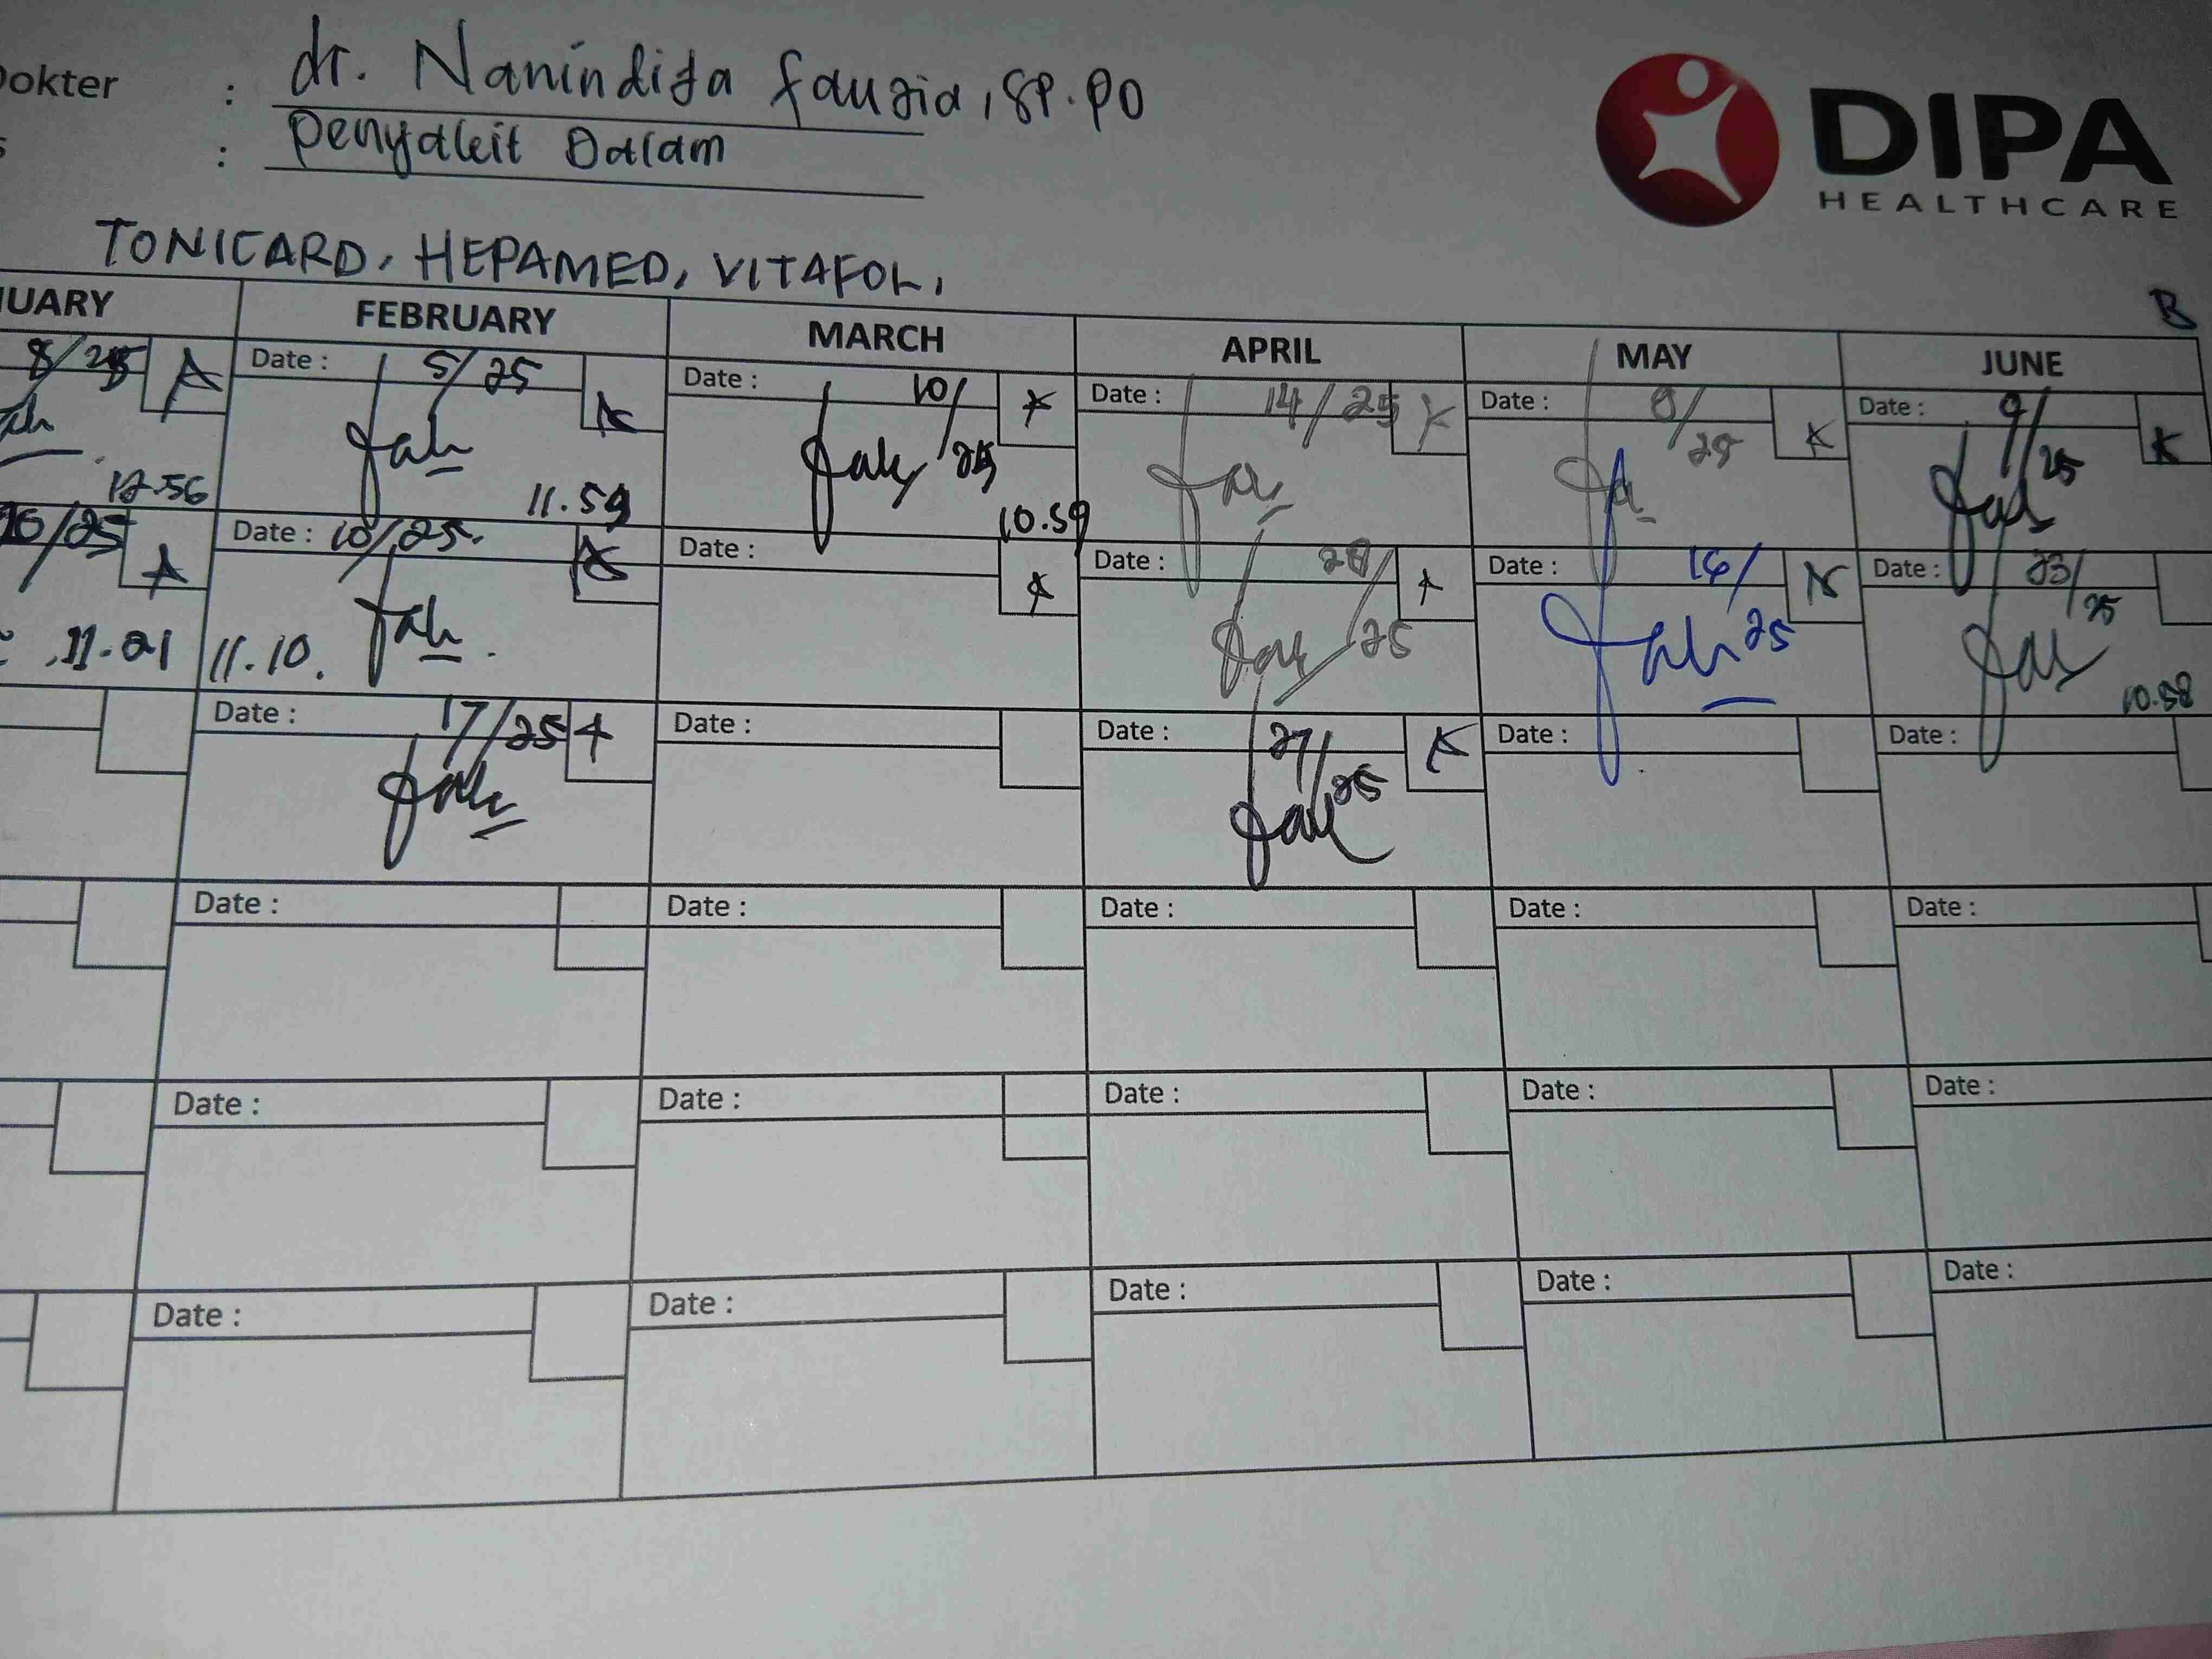 Dokter : dr. Nanindita Fauzia, SP.PD
: Penyakit Dalam
DIPA
HEALTHCARE
TONICARD, HEPAMED, VITAFOL,
B
UARY FEBRUARY MARCH APRIL MAY JUNE
8/25 Date : 5/25 Date : 10/25 Date : 14/25 Date : 8/25 Date : 9/25
12.56 11.59 10.59
/25 Date : 10/25. Date : Date : /25 Date : 16/25 Date : 23/25
11.21 11.10. 10.58
Date : 17/25 Date : Date : 27/25 Date : Date :
Date : Date : Date : Date : Date :
Date : Date : Date : Date : Date :
Date : Date : Date : Date : Date :